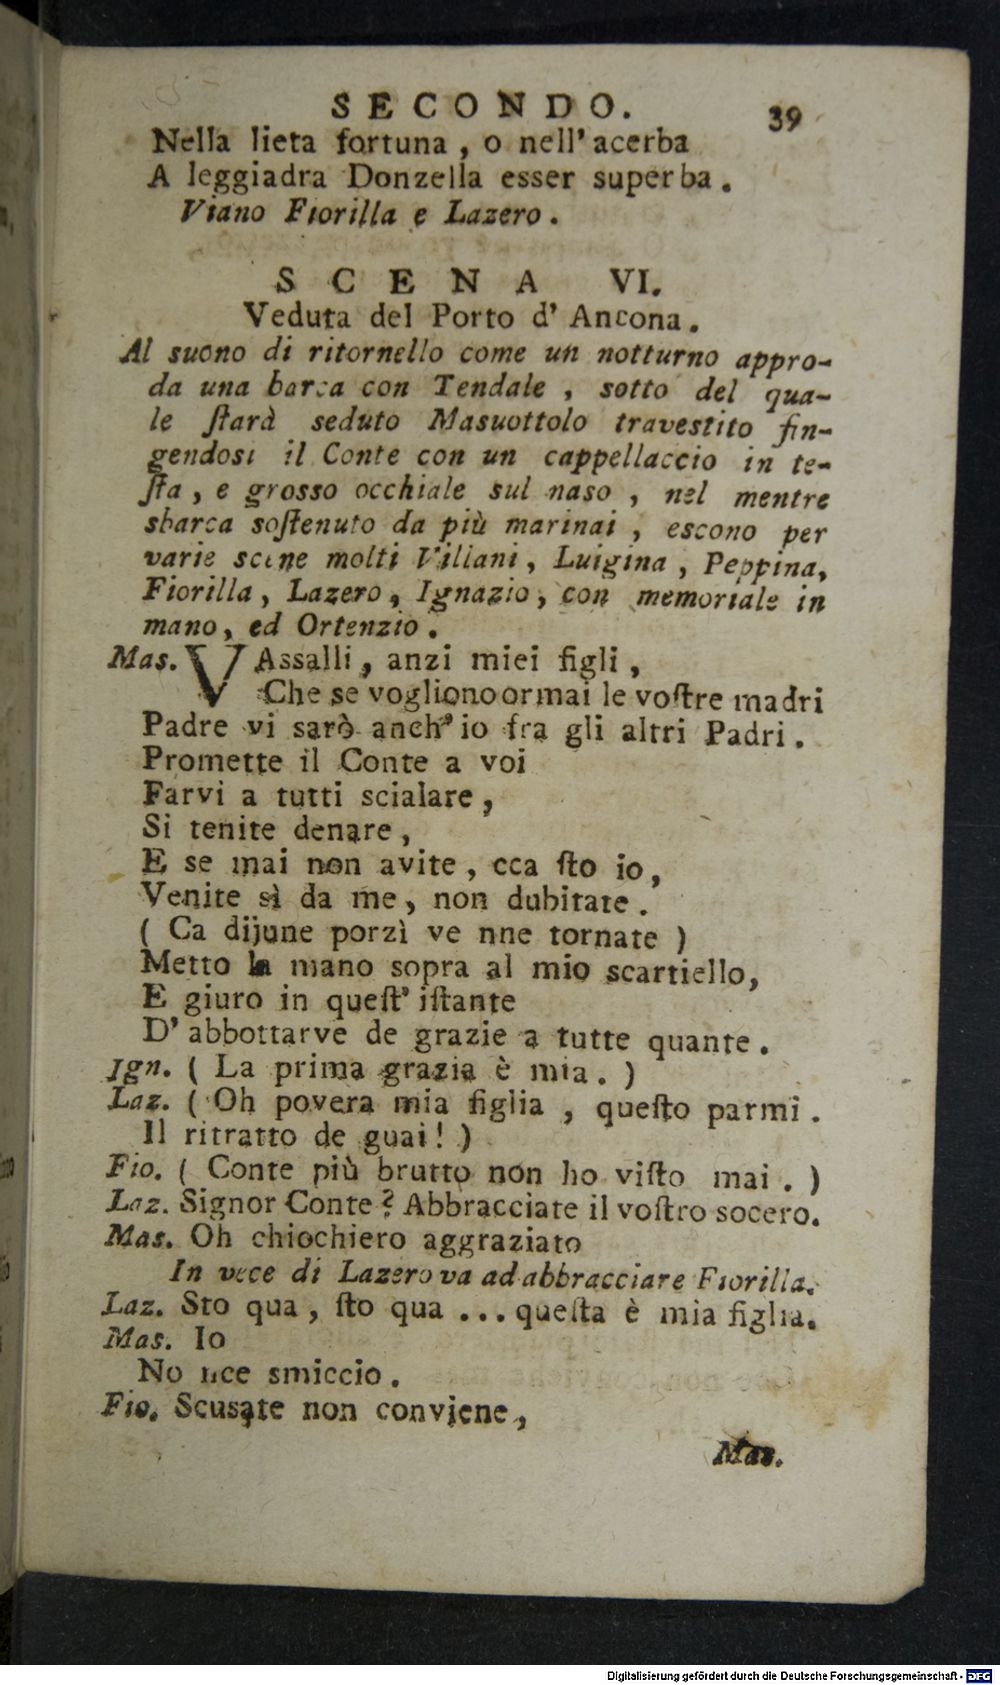 SECONDO. 39
Nella lieta fortuna , o nell' acerba
A leggiadra Donzella esser superba .
Viano Fiorilla e Lazero .
SCENA VI.
Veduta del Porto d' Ancona .
Al suono di ritornello come un notturno appro-
da una barca con Tendale , sotto del qua-
le ſtarà seduto Masuottolo travestito fin-
gendosi il Conte con un cappellaccio in te-
ſta , e grosso occhiale sul naso , nel mentre
sbarca soſtenuto da più marinai , escono per
varie scene molti Villani , Luigina , Peppina,
Fiorilla , Lazero , Ignazio , con memoriale in
mano, ed Ortenzio .
Mas. VAssalli , anzi miei figli ,
Che se vogliono ormai le voſtre madri
Padre vi sarò anch' io fra gli altri Padri .
Promette il Conte a voi
Farvi a tutti scialare ,
Si tenite denare ,
E se mai non avite , cca ſto io ,
Venite sì da me , non dubitate .
( Ca dijune porzì ve nne tornate )
Metto la mano sopra al mio scartiello,
E giuro in queſt' iſtante
D' abbottarve de grazie a tutte quante .
Ign. ( La prima grazia è mia . )
Laz. ( Oh povera mia figlia , queſto parmi .
Il ritratto de guai ! )
Fio. ( Conte più brutto non ho viſto mai . )
Laz. Signor Conte ? Abbracciate il voſtro socero.
Mas. Oh chiochiero aggraziato
In vece di Lazero va ad abbracciare Fiorilla.
Laz. Sto qua , ſto qua ... queſta è mia figlia.
Mas. Io
No nce smiccio .
Fio. Scusate non conviene ,
Mas.
Digitalisierung gefördert durch die Deutsche Forschungsgemeinschaft - DFG